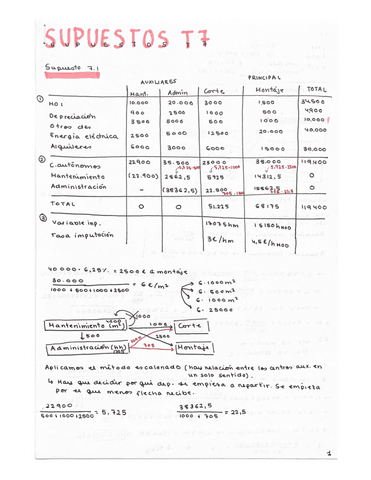 SUPUESTOS T7
Supuesto 7.1
AUXILIARES PRINCIPAL
Mant. Admin Corte Montaje TOTAL
① MOI 10.000 20.000 3000 1.500 34.500
Depreciación 900 2500 1000 500 4900
Otros 3500 5000 500 1000 10.000
Energía eléctrica 2500 5000 12500 20.000 40.000
Alquileres 6000 3000 6000 15000 30.000
② C. autónomos 22900 35.500 23000 38.000 119.400
Mantenimiento (22.900) 2862,5 5725 14312,5 0
Administración - (38362,5) 22.500 15862,5 0
TOTAL 0 0 51.225 68175 119.400
③ Variable imp. 17075hm 15150hMOD
Tasa imputación 3€/hm 4,5€/hMOD
40.000 · 6,25% = 2500€ a montaje
30.000 / 1000 + 500 + 1000 + 2500 = 6€/m²
6 · 1000m²
6 · 500m²
6 · 1000m²
6 · 2500m²
Mantenimiento (m²) 1000 Corte
500 2500
Administración (hh) 705 Montaje
Aplicamos el método escalonado (hay relación entre los centros aux. en
un solo sentido).
↳ Hay que decidir por qué dep. se empieza a repartir. Se empieza
por el que menos flecha recibe.
22900 / 500+1000+2500 = 5,725
38362,5 / 1000 + 705 = 22,5